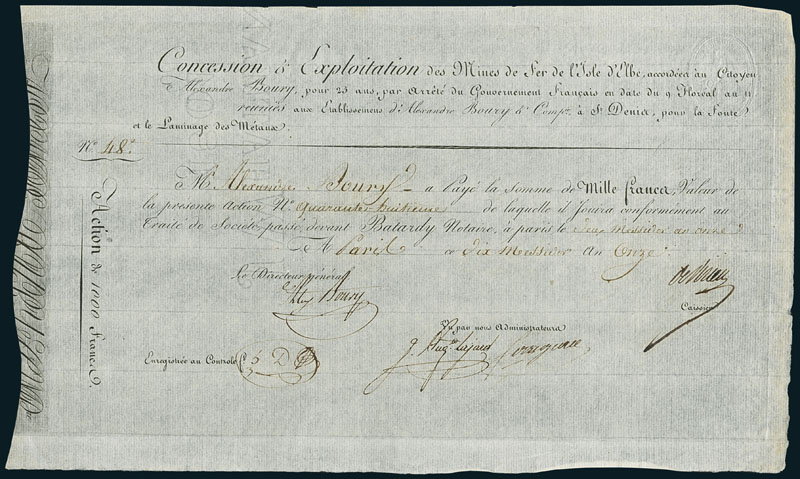 Concession & Exploitation des Mines de Fer de l'Isle d'Elbe, accordée au Citoyen
Alexandre Boury, pour 25 ans, par Arrêté du Gouvernement Français en date du 9 Floréal an 11
réunies aux Etablissemens d'Alexandre Boury & Comp.e à St Denis, pour la Fonte
et le Laminage des Métaux.
No. 48.
Mr. Alexandre Boury a Payé la somme de Mille francs, Valeur de
la présente Action No. quarante huitieme de laquelle il Jouira conformément au
Traité de Société passé devant Batardy Notaire, à paris le Messidor an onze
A Paris ce Dix Messidor An Onze.
Le Directeur général
Boury
Caissier
Vu par nous Administrateurs
Enregistrée au Controle
Action de 1000 Francs.